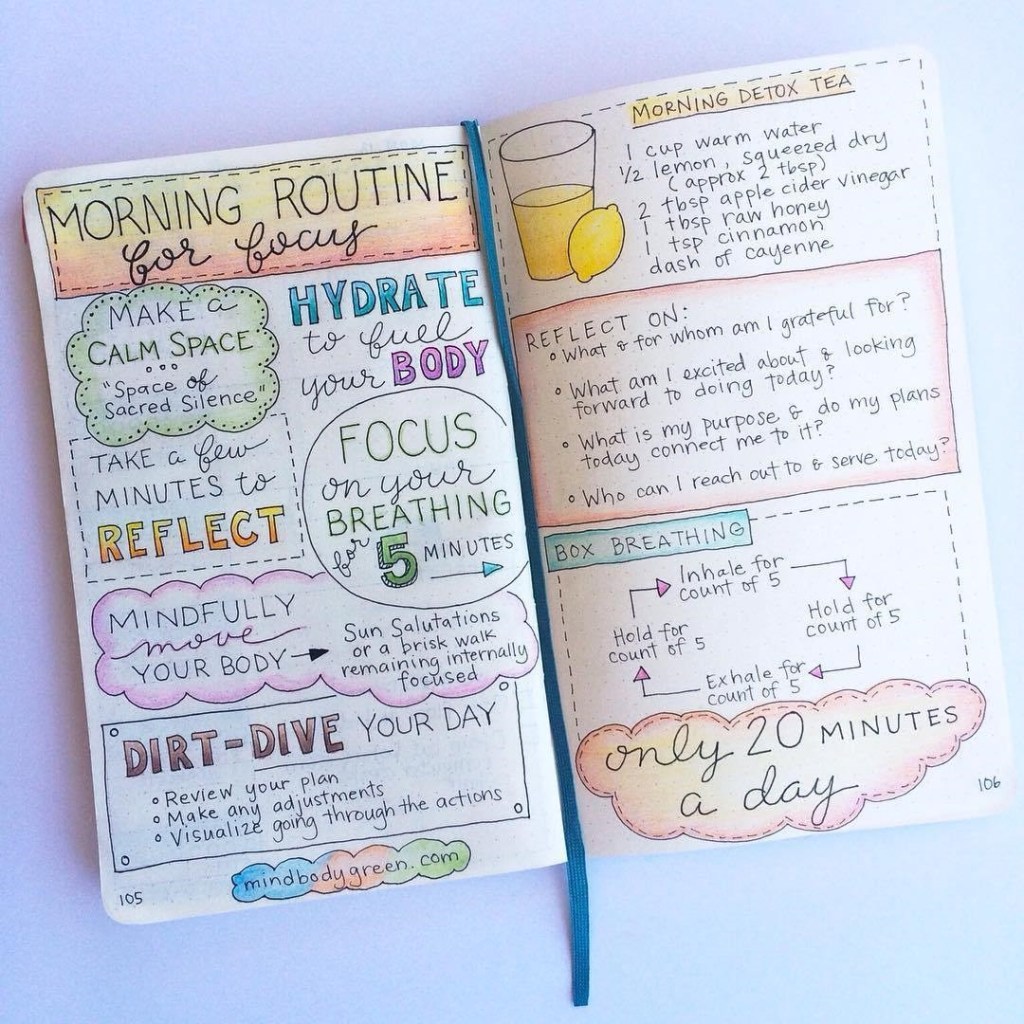 MORNING ROUTINE
for focus
MAKE a
CALM SPACE
"Space of
Sacred Silence"
HYDRATE
to fuel
your BODY
TAKE a few
MINUTES to
REFLECT
FOCUS
on your
BREATHING
for 5 MINUTES
MINDFULLY
move
YOUR BODY
Sun Salutations
or a brisk walk
remaining internally
focused
DIRT-DIVE YOUR DAY
Review your plan
Make any adjustments
Visualize going through the actions
mindbodygreen.com
105
MORNING DETOX TEA
1 cup warm water
1/2 lemon, squeezed dry
(approx 2 tbsp)
2 tbsp apple cider vinegar
1 tbsp raw honey
1 tsp cinnamon
dash of cayenne
REFLECT ON:
• What & for whom am I grateful for?
• What am I excited about & looking
forward to doing today?
• What is my purpose & do my plans
today connect me to it?
• Who can I reach out to & serve today?
BOX BREATHING
Inhale for
count of 5
Hold for
count of 5
Exhale for
count of 5
Hold for
count of 5
only 20 MINUTES
a day
106